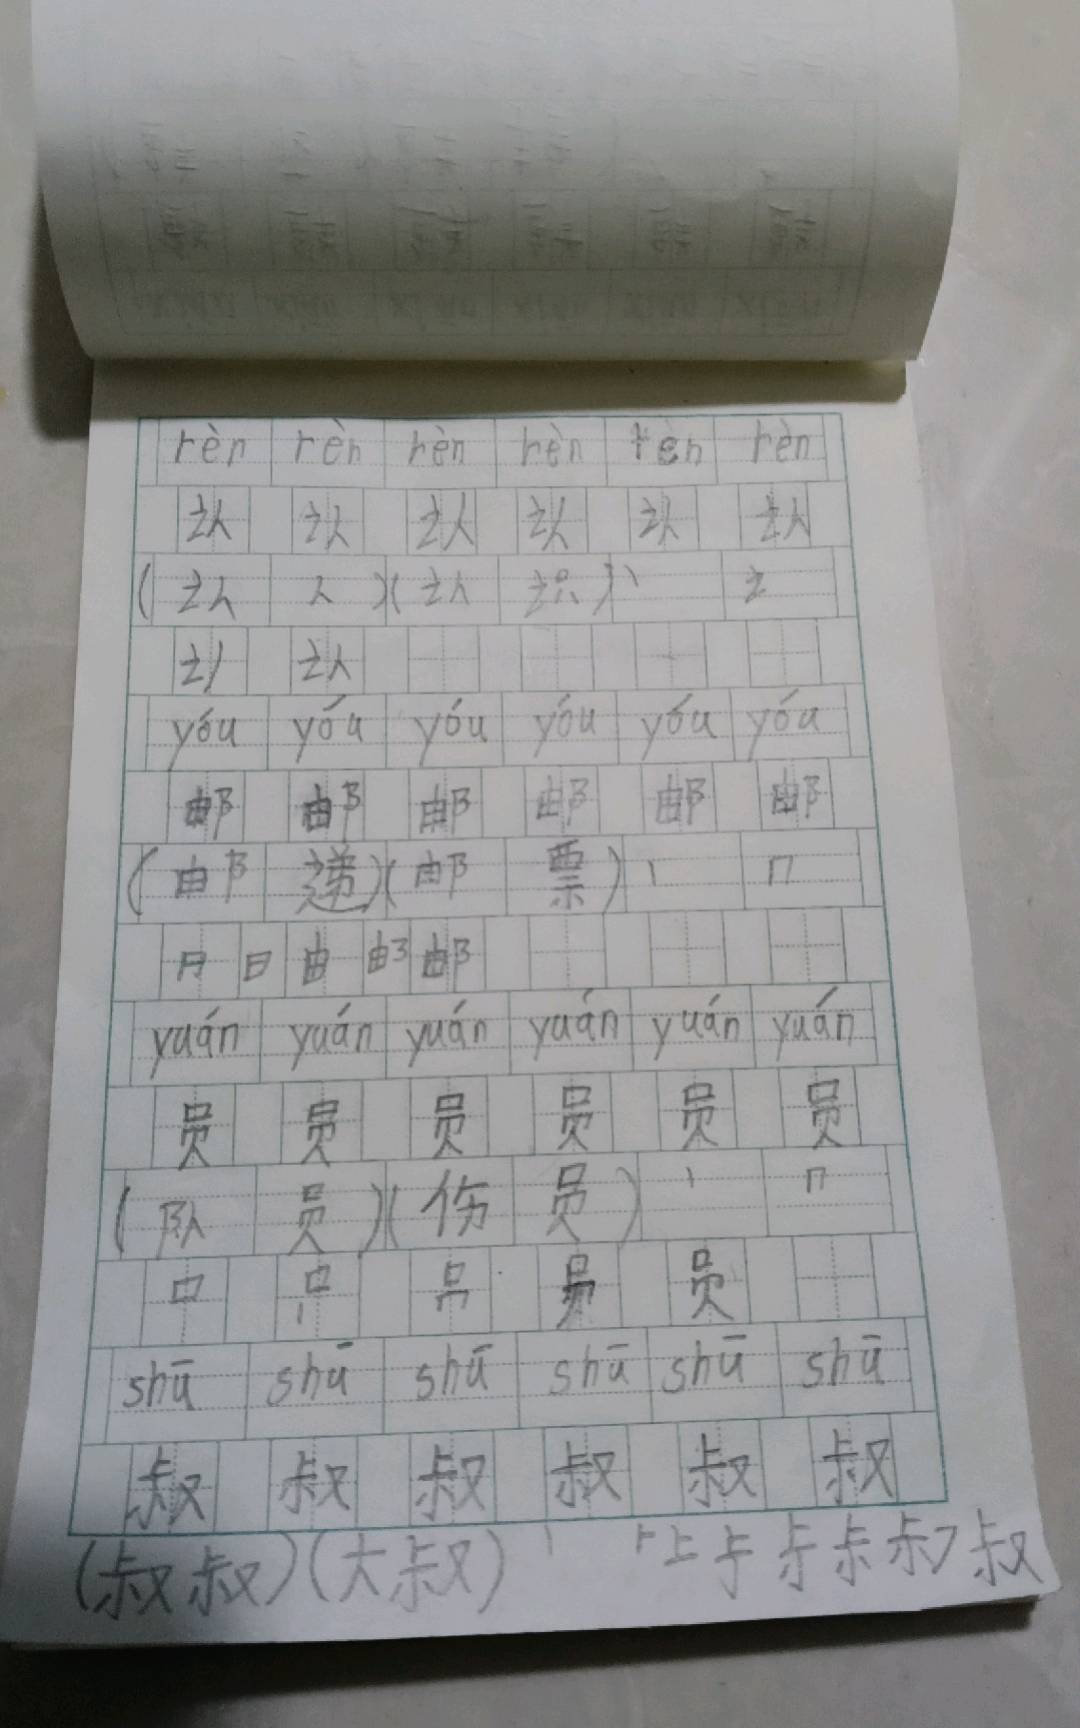 rèn rèn rèn rèn rèn rèn
认 认 认 认 认 认
(认 人)(认 识)丶 讠
认
yóu yóu yóu yóu yóu yóu
邮 邮 邮 邮 邮 邮
(邮 递)(邮 票)丨 冂
日 由 邮
yuán yuán yuán yuán yuán yuán
员 员 员 员 员 员
(队 员)(伤 员)丨 冂
口 员
shū shū shū shū shū shū
叔 叔 叔 叔 叔 叔
(叔叔)(大叔)丨 上 叔